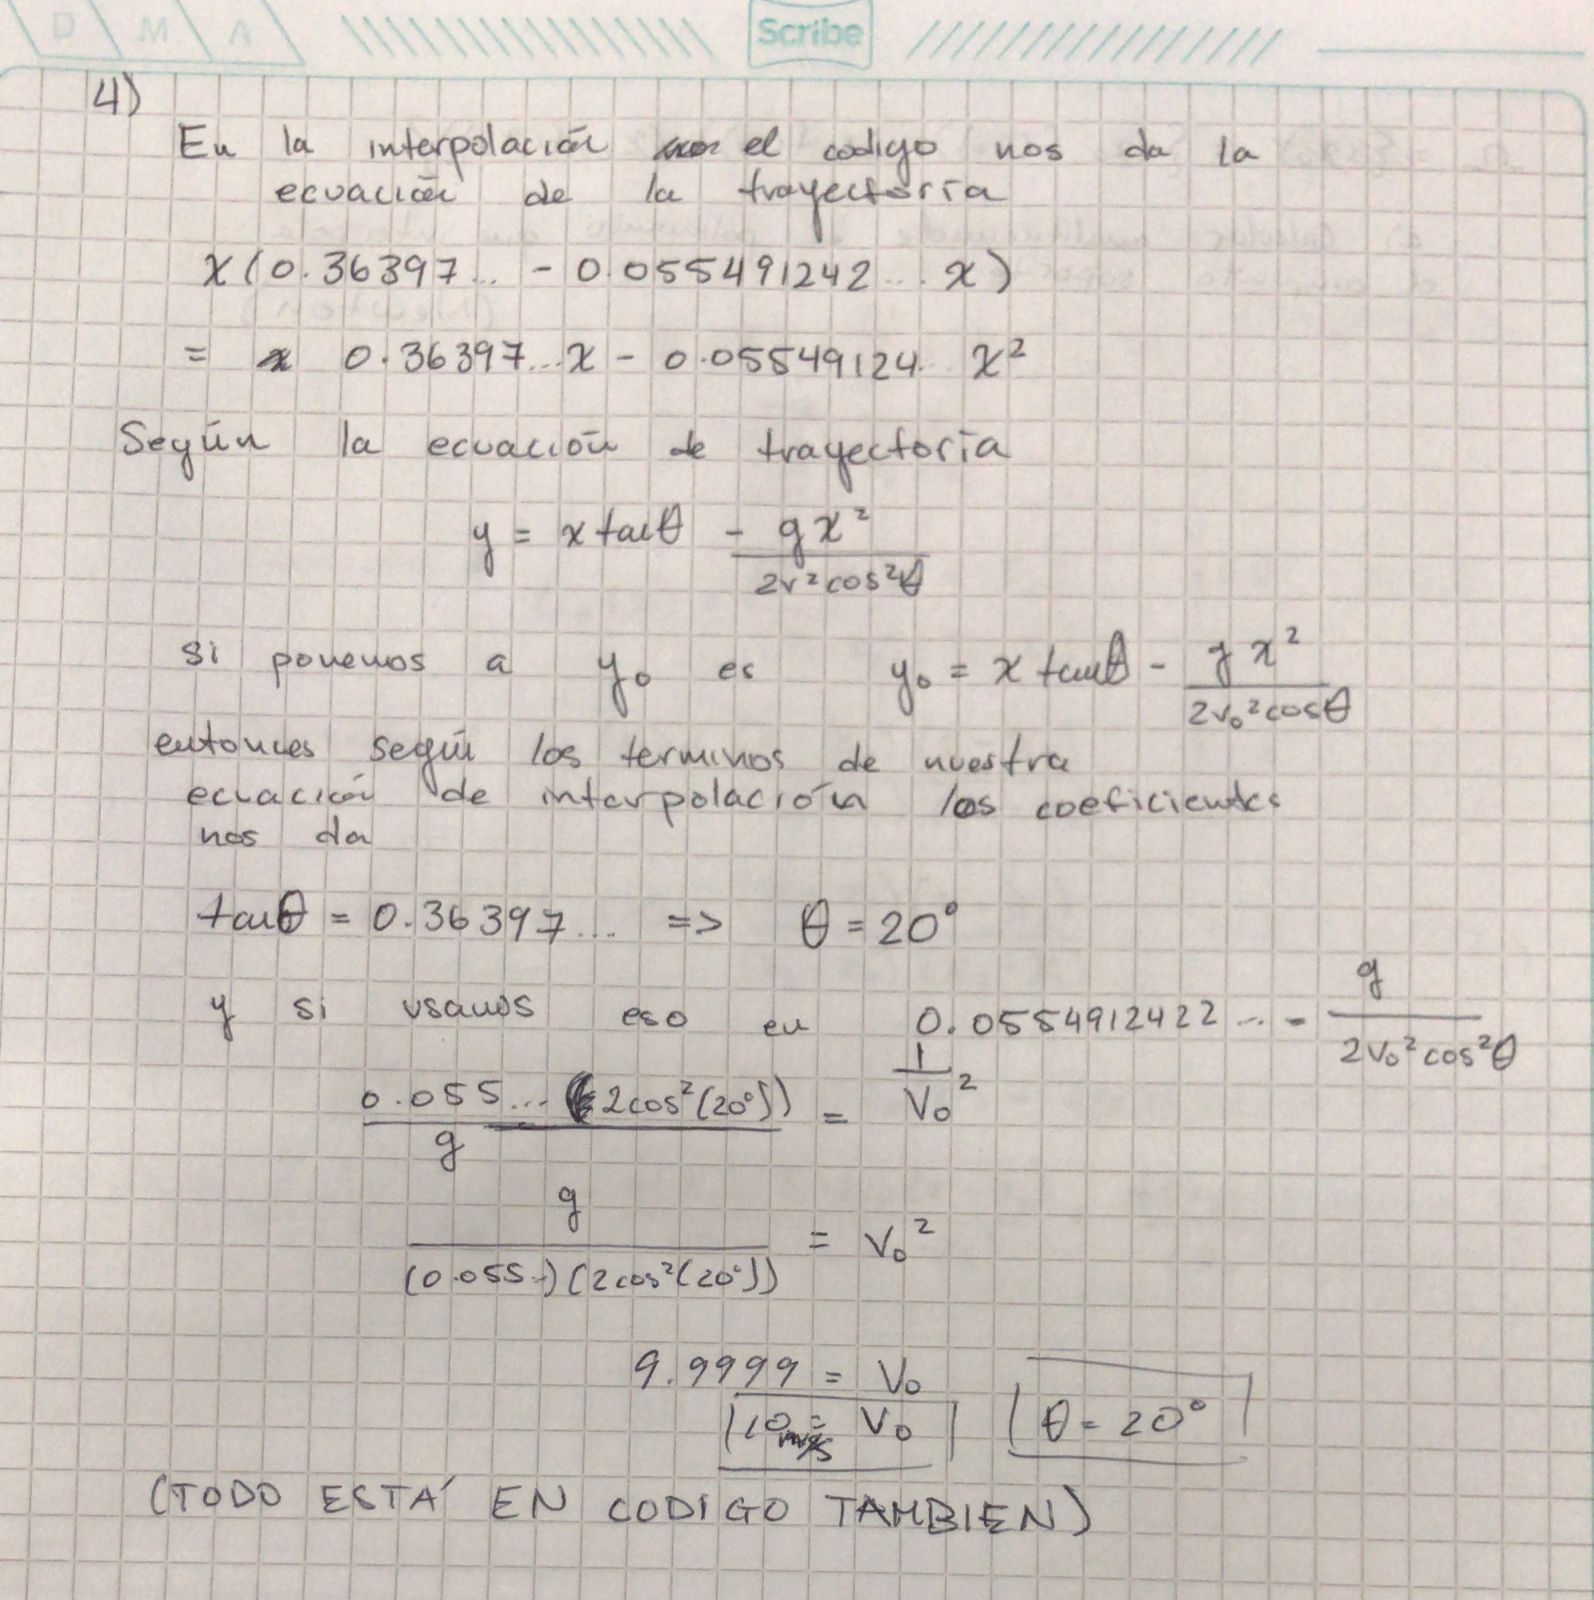 D M A Scribe
4)
En la interpolación el codigo nos da la
ecuación de la trayectoria
x(0.36397... - 0.055491242... x)
= 0.36397...x - 0.05549124.. x²
Según la ecuación de trayectoria
y = x tanθ - gx² / 2v²cos²θ
si ponemos a y₀ es y₀ = x tanθ - gx² / 2v₀²cosθ
entonces según los terminos de nuestra
ecuación de interpolación los coeficientes
nos da
tanθ = 0.36397... => θ = 20°
y si usamos eso en 0.0554912422... - g / 2v₀²cos²θ
0.055... (2cos²(20°)) / g = 1 / V₀²
g / (0.055..)(2cos²(20°)) = V₀²
9.9999 = V₀
10 m/s = V₀ θ = 20°
(TODO ESTÁ EN CODIGO TAMBIEN)